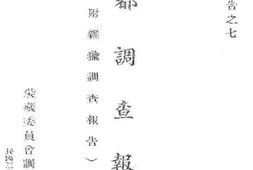 告之七
都調查報
附雜調查報告）
蒙藏委員會調
民國